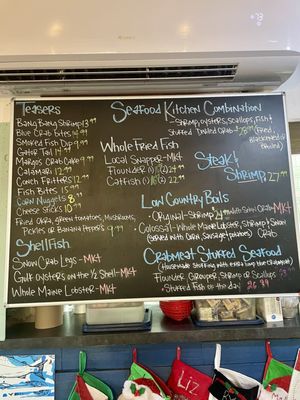 Teasers
Bang Bang Shrimp 13.99
Blue Crab Bites 14.99
Smoked Fish Dip 9.99
Gator Tail 14.99
Margos Crab Cake 9.99
Calamari 12.99
Conch Fritters 12.99
Fish Bites 15.99
Corn Nuggets 8.99
Cheese Sticks 10.99
Fried Okra, Green Tomatoes, Mushrooms,
Pickles or Banana Peppers 9.99
Shellfish
Snow Crab Legs - MKT
Gulf Oysters on the ½ Shell - MKT
Whole Maine Lobster - MKT
Seafood Kitchen Combination
- Shrimp, oysters, Scallops, Fish &
Stuffed Deviled Crab - 28.99 (Fried, Blackened
or Broiled)
Whole Fried Fish
Local Snapper - MKT
Flounder (1) (2) 24.99
Catfish (1) (2) 22.99
Steak &
Shrimp 27.99
Low Country Boils
- Original - Shrimp Snow Crab - MKT
- Colossal - Whole Maine Lobster, Shrimp & Snow
(Served with Corn, Sausage & Potatoes) Crab
Crabmeat Stuffed Seafood
(Housemade Stuffing with extra lump blue crabmeat)
Flounder Grouper Shrimp or Scallops
- Stuffed Fish of the day 26.99
LIZ